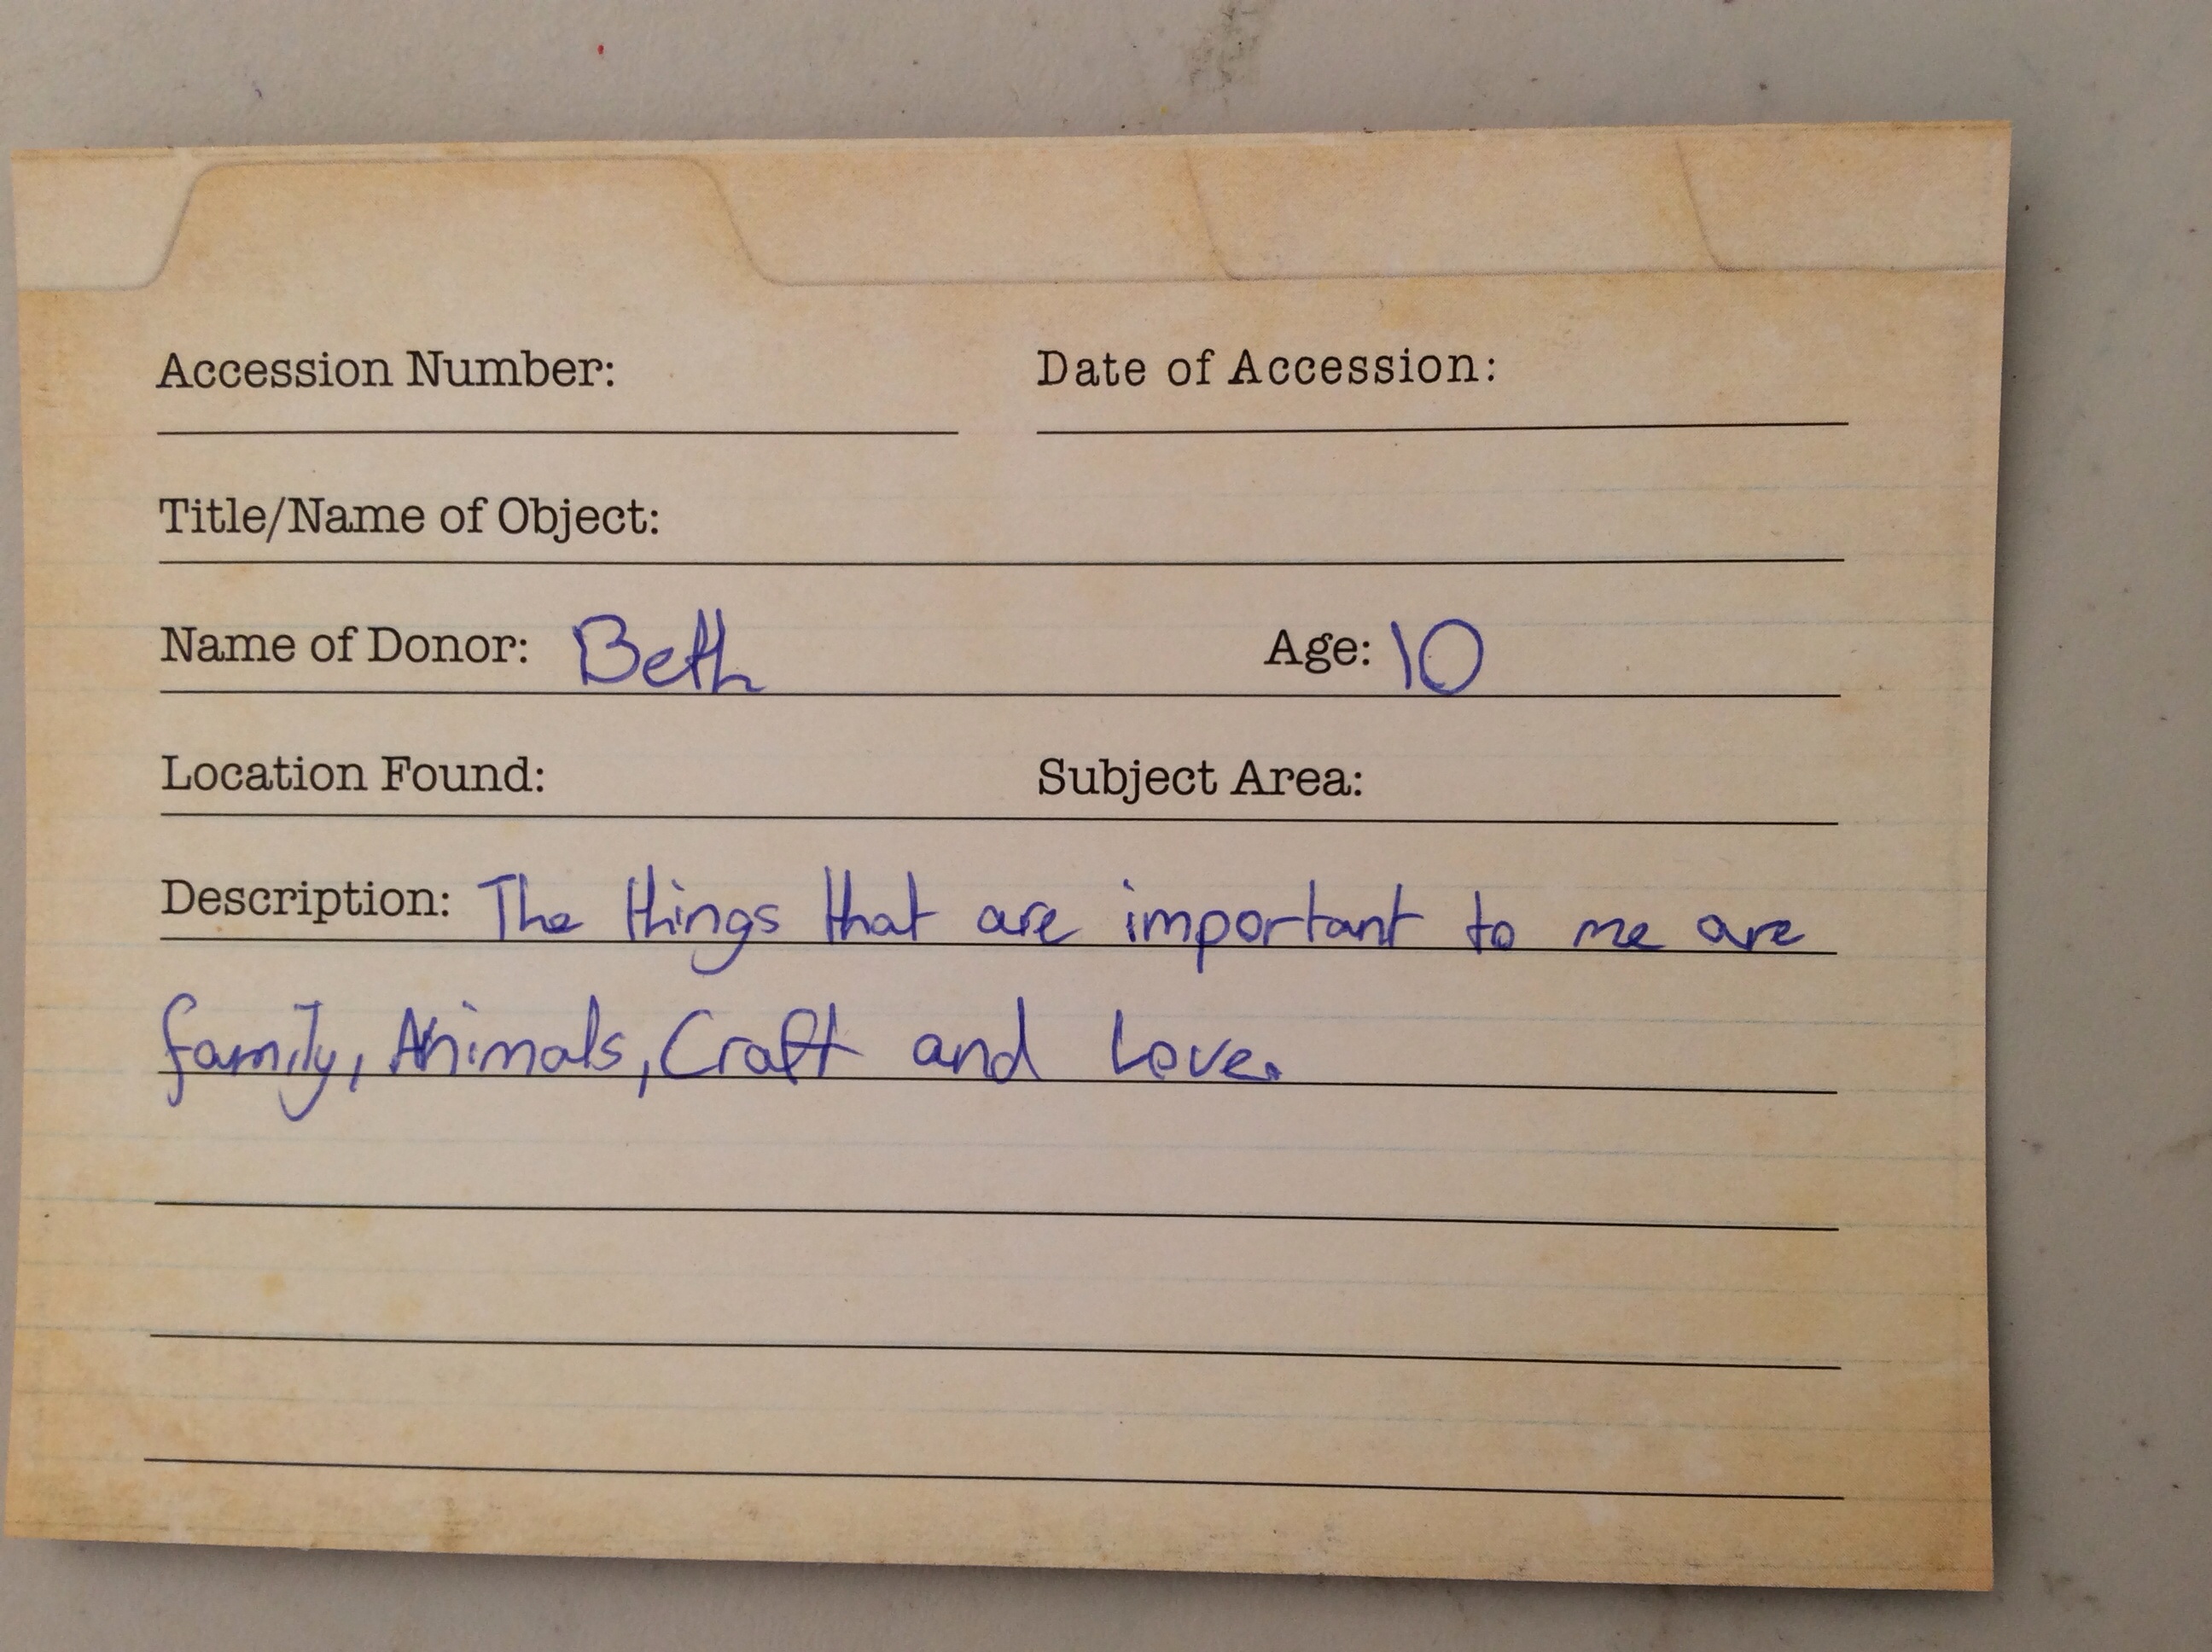 Accession Number: Date of Accession:
Title/Name of Object:
Name of Donor: Beth Age: 10
Location Found: Subject Area:
Description: The things that are important to me are
family, Animals, Craft and Love.